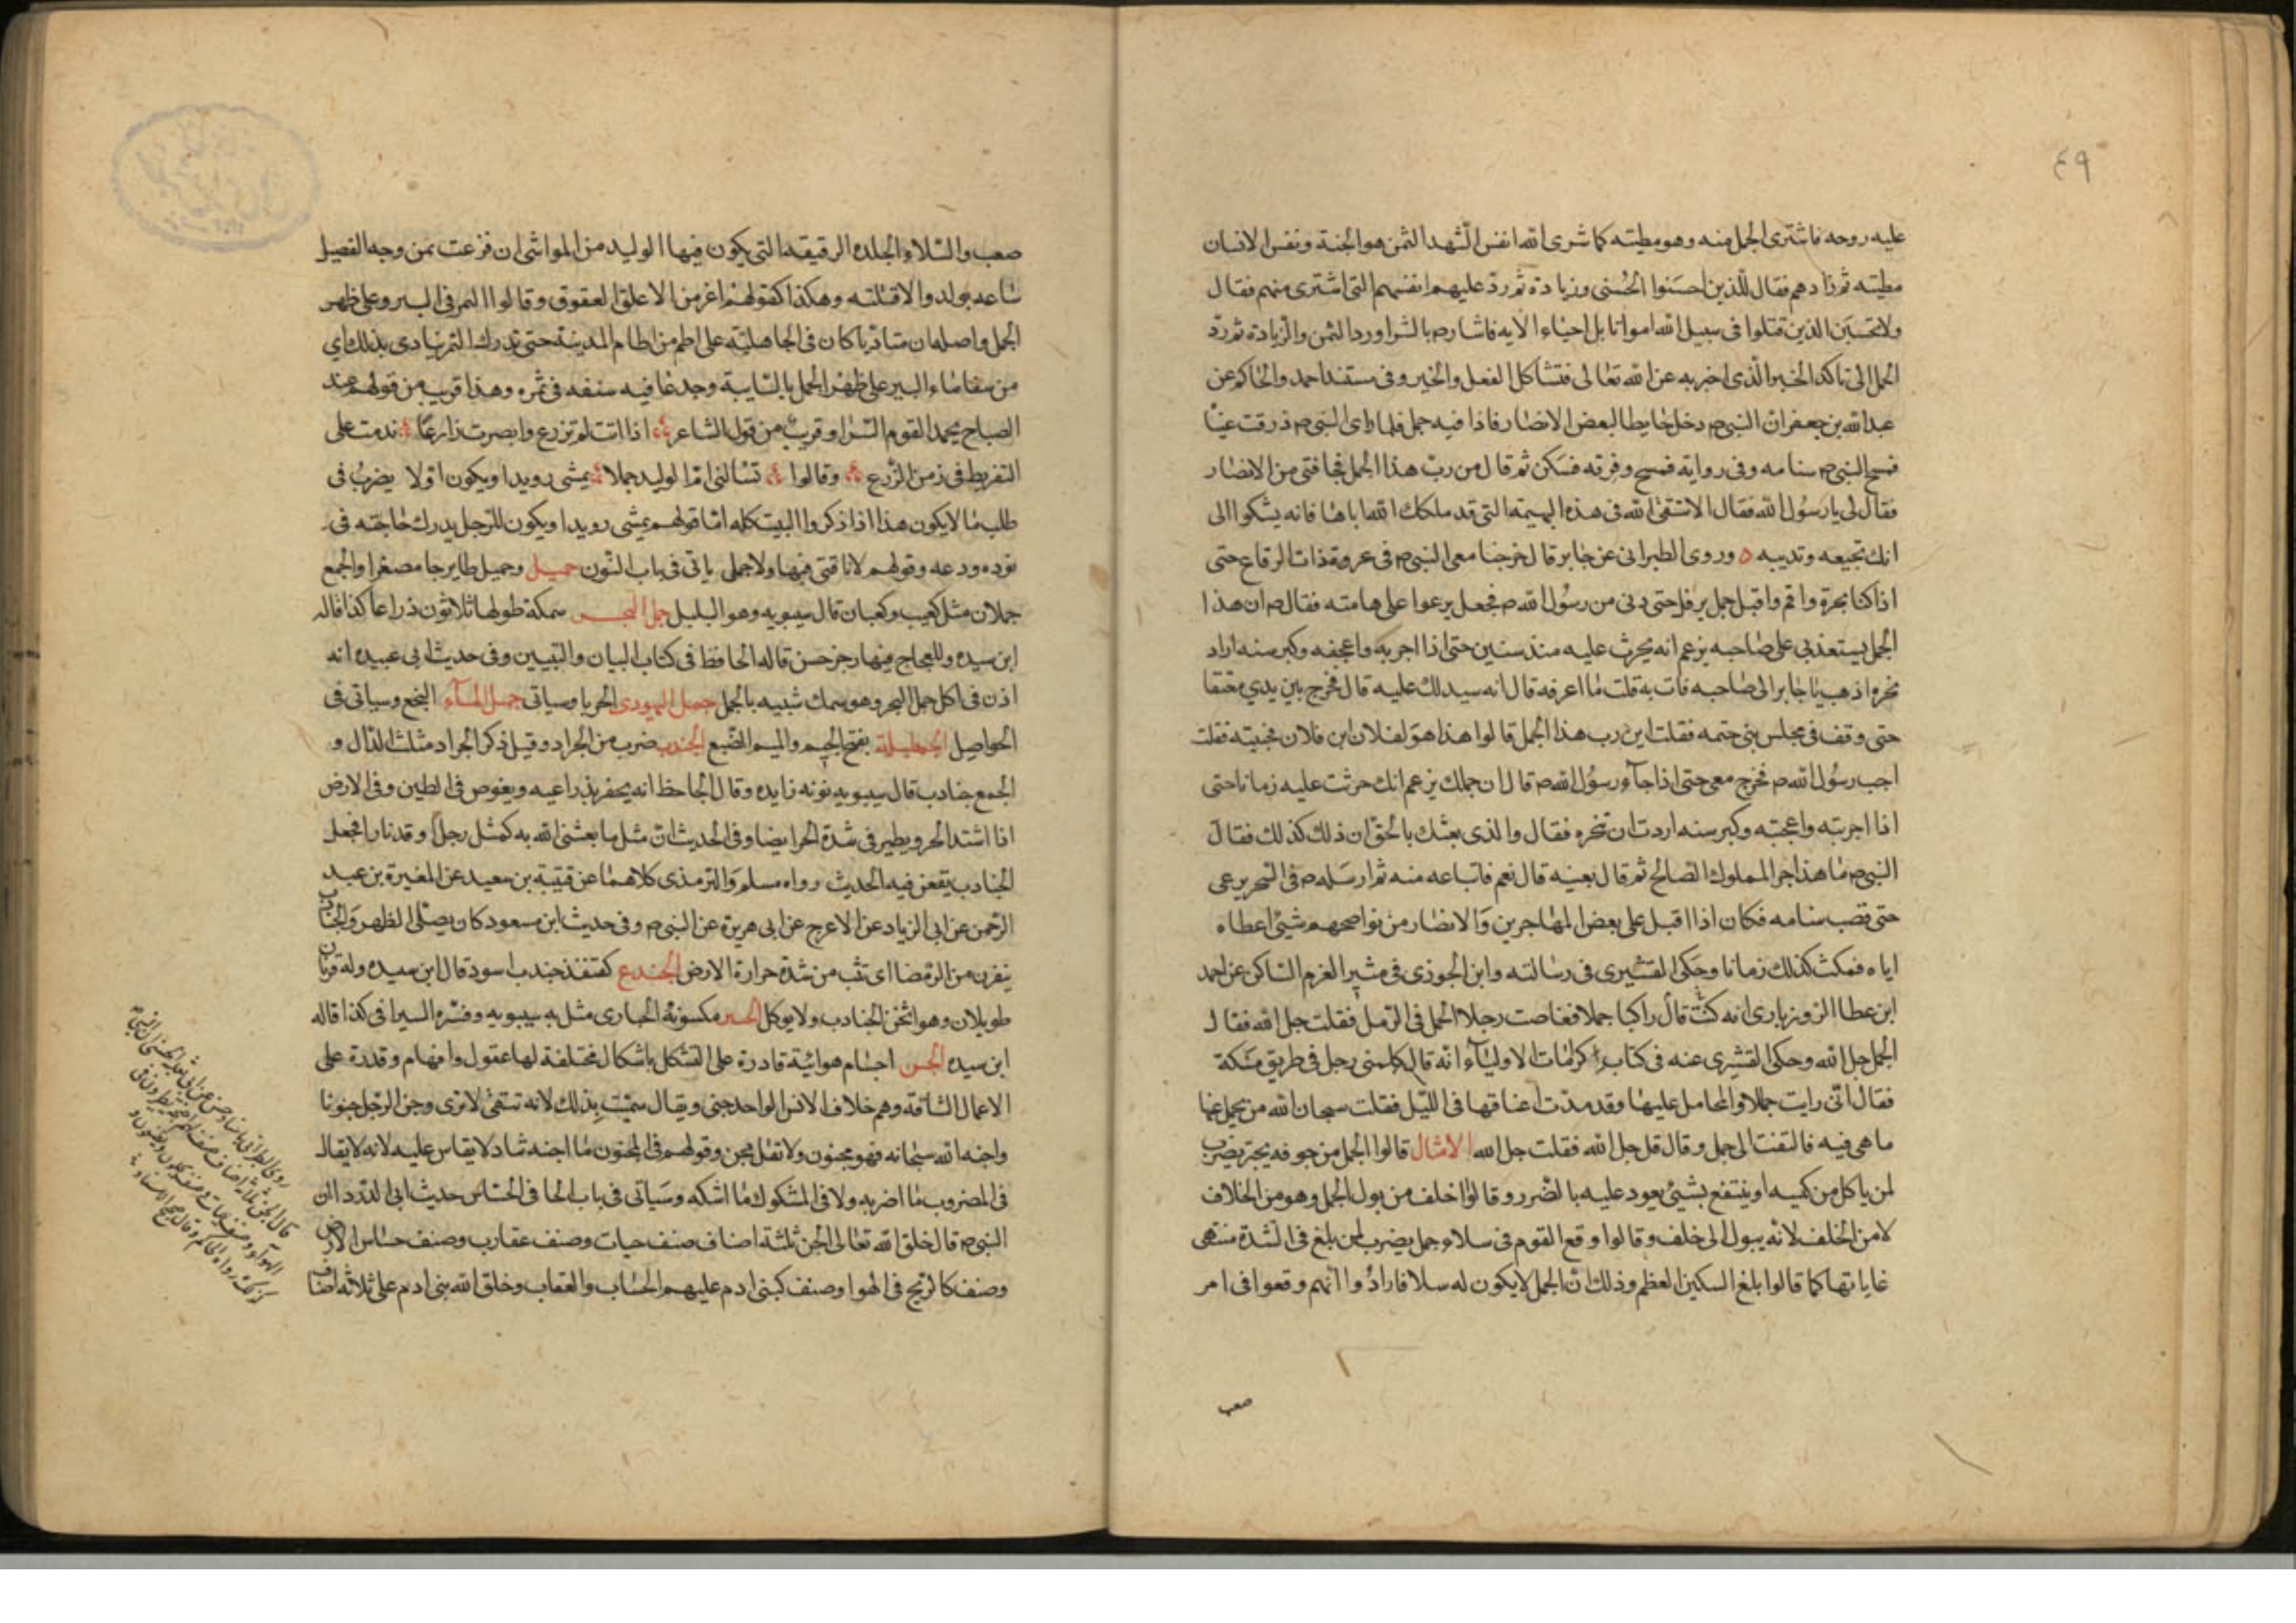 ٤٩
عليه روحه فاشترى الجمل منه وهو مطيته كما شرى الله انفس الشهدا الثمن هو الجنة ونفس الانسان
مطيته ثم زادهم فقال للذين احسنوا الحسنى وزيادة ثم رد عليهم انفسهم التى اشترى منهم فقال
ولا تحسبن الذين قتلوا فى سبيل الله امواتا بل احياء الايه فاشار ص بالشرا ورد الثمن والزيادة ثم رد
الجمل الى تاكد الخبر الذى اخبر به عن الله تعالى فتشاكل الفعل والخبر وفى مسند احمد والحاكم عن
عبد الله بن جعفر ان النبى ص دخل حايطا لبعض الانصار فاذا فيه جمل فلما راى النبى ص ذرفت عينا
فمسح النبى ص سنامه وفى رواية فمسح وفرته فسكن ثم قال من رب هذا الجمل فجا فتى من الانصار
فقال لى يا رسول الله فقال الا تتقى الله فى هذه البهيمة التى قد ملكك الله اياها فانه يشكوا الى
انك تجيعه وتدييه ٥ وروى الطبرانى عن جابر قال خرجنا مع النبى ص فى غزوة ذات الرقاع حتى
اذا كنا بحرة واقم واقبل جمل يرفل حتى دنى من رسول الله ص فجعل يرعوا على هامته فقال ص ان هذا
الجمل يستعذبى على صاحبه يزعم انه يحرث عليه منذ سنين حتى اذا اجربه واعجفه وكبر سنه اراد
نحره اذهب يا جابر الى صاحبه فات به قلت ما اعرفه قال انه سيدلك عليه قال فخرج بين يدي معنقا
حتى وقف فى مجلس بنى حتمه فقلت اين رب هذا الجمل قالوا هذا هو لفلان ابن فلان فجئيته فقلت
اجب رسول الله ص فخرج معى حتى اذا جاؤ رسول الله ص قال ان جملك يزعم انك حرثت عليه زمانا حتى
اذا اجربته واعجبته وكبر سنه اردت ان تنحره فقال والذى بعثك بالحق ان ذلك كذلك فقال
النبى ص ما هذا جزا المملوك الصالح ثم قال بعنيه قال نعم فابتاعه منه ثم ارسله ص فى الشجر يرعى
حتى نصب سنامه فكان اذا اقبل على بعض المهاجرين والانصار من نواضحهم شيئ اعطاه
اياه فمكث كذلك زمانا وحكى القشيرى فى رسالته وابن الجوزى فى مثير الغرم الساكن عن احمد
ابن عطا الروزبارى انه كنت قال راكبا جملا فغاصت رجلا الجمل فى الرمل فقلت جل الله فقال
الجمل جل الله وحكى القشيرى عنه فى كتاب كرامات الاولياء انه قال كلمنى رجل فى طريق مكة
فقال انى رايت جمالا والمحامل عليها وقد مدت اعناقها فى الليل فقلت سبحان الله من يحمل عنها
ما هى فيه فالتفت الى جمل وقال قل جل الله فقلت جل الله الامثال قالوا الجمل من جوفه يجتر يضرب
لمن ياكل من كيسه او ينتفع بشيئ يعود عليه بالضرر وقالوا اخلف من بول الجمل وهو من الخلاف
لا من الخلف لانه يبول الى خلف وقالوا وقع القوم فى سلاء جمل يضرب لمن بلغ فى الشدة منتهى
غاياتها كما قالوا بلغ السكين العظم وذلك ان الجمل لا يكون له سلا فارادوا انهم وقعوا فى امر
صعب
صعب والسلاء الجلده الرقيقه التى يكون فيها الوليد من المواشى ان نزعت من وجه الفصيل
ساعه يولد والا قتلته وهكذا كقولهم اعز من الابلق العقوق وقالوا الثمر فى البير وعلى ظهر
الجمل واصله ان مناديا كان فى الجاهلية على اطم من اطام المدينة حتى تدرك الثمر ينادى بذلك اي
من سقا ماء البير على ظهر الجمل بالسانية وجد عاقبه سنفه فى ثمره وهذا قريب من قولهم عند
الصباح يحمد القوم السرا وقريب من قول الشاعر اذا انت لم تزرع وابصرت زارعا ندمت على
التفريط فى زمن الزرع وقالوا تسالنى ام الوليد جملا يمشى رويدا ويكون اولا يضرب فى
طلب ما لا يكون هذا اذا ذكروا البيت كله اما قولهم يمشى رويدا ويكون للرجل يدرك حاجته فى
توده ودعه وقولهم لا ناقتى فيها ولا جملى ياتى فى باب النون جميل وجميل طاير جا مصغرا والجمع
جملان مثل كعيب وكعبان قال سيبويه وهو البلبل جمل البحر سمكة طولها ثلاثون ذراعا كذا قاله
ابن سيده وللعجاج فيها رجز حسن قاله الحافظ فى كتاب البيان والتبيين وفى حديث ابى عبيده انه
اذن فى اكل جمل البحر وهو سمك شبيه بالجمل جمل اليهودى الحربا وسياتى جمل الماء البجع وسياتى فى
الحواصل الجمعليلة بفتح الجيم والميم الضبع الجندب ضرب من الجراد وقيل ذكر الجراد مثلث الدال و
الجمع جنادب قال سيبويه نونه زايده وقال الجاحظ انه يحفر بذراعيه ويغوص فى الطين وفى الارض
اذا اشتد الحر ويطير فى شدة الحر ايضا وفى الحديث ان مثل ما بعثنى الله به كمثل رجل اوقد نارا فجعل
الجنادب يقعن فيه الحديث رواه مسلم والترمذى كلاهما عن قتيبة بن سعيد عن المغيرة بن عبد
الرحمن عن ابى الزياد عن الاعرج عن ابى هريرة عن النبى ص وفى حديث ابن مسعود كان يصلى الظهر والجنادب
ينفرن من الرمضا اى تثب من شدة حرارة الارض الجندع كقنفذ جندب اسود قال ابن سيده وله قرنان
طويلان وهو اثخن الجنادب ولا يوكل الجنبر مكسونة الحبارى مثل به سيبويه وفسره السيرافى كذا قاله
ابن سيده الجن اجسام هوائية قادرة على التشكل باشكال مختلفة لها عقول وافهام وقدرة على
الاعمال الشاقة وهم خلاف الانس الواحد جنى ويقال سميت بذلك لانه تتقى لا ترى وجن الرجل جنونا
واجنه الله سبحانه فهو مجنون ولا تقل مجن وقولهم فى المجنون ما اجنه شاد لا يقاس عليه لانه لا يقال
فى المضروب ما اضربه ولا فى المشكوك ما اشكه وسياتى فى باب الحا فى الحساس حديث ابى الدردا ان
النبى ص قال خلق الله تعالى الجن ثلثة اصناف صنف حيات وصنف عقارب وصنف حساس الارض
وصنف كالريح فى الهوا وصنف كبنى ادم عليهم الحساب والعقاب وخلق الله بنى ادم على ثلاثة اصناف